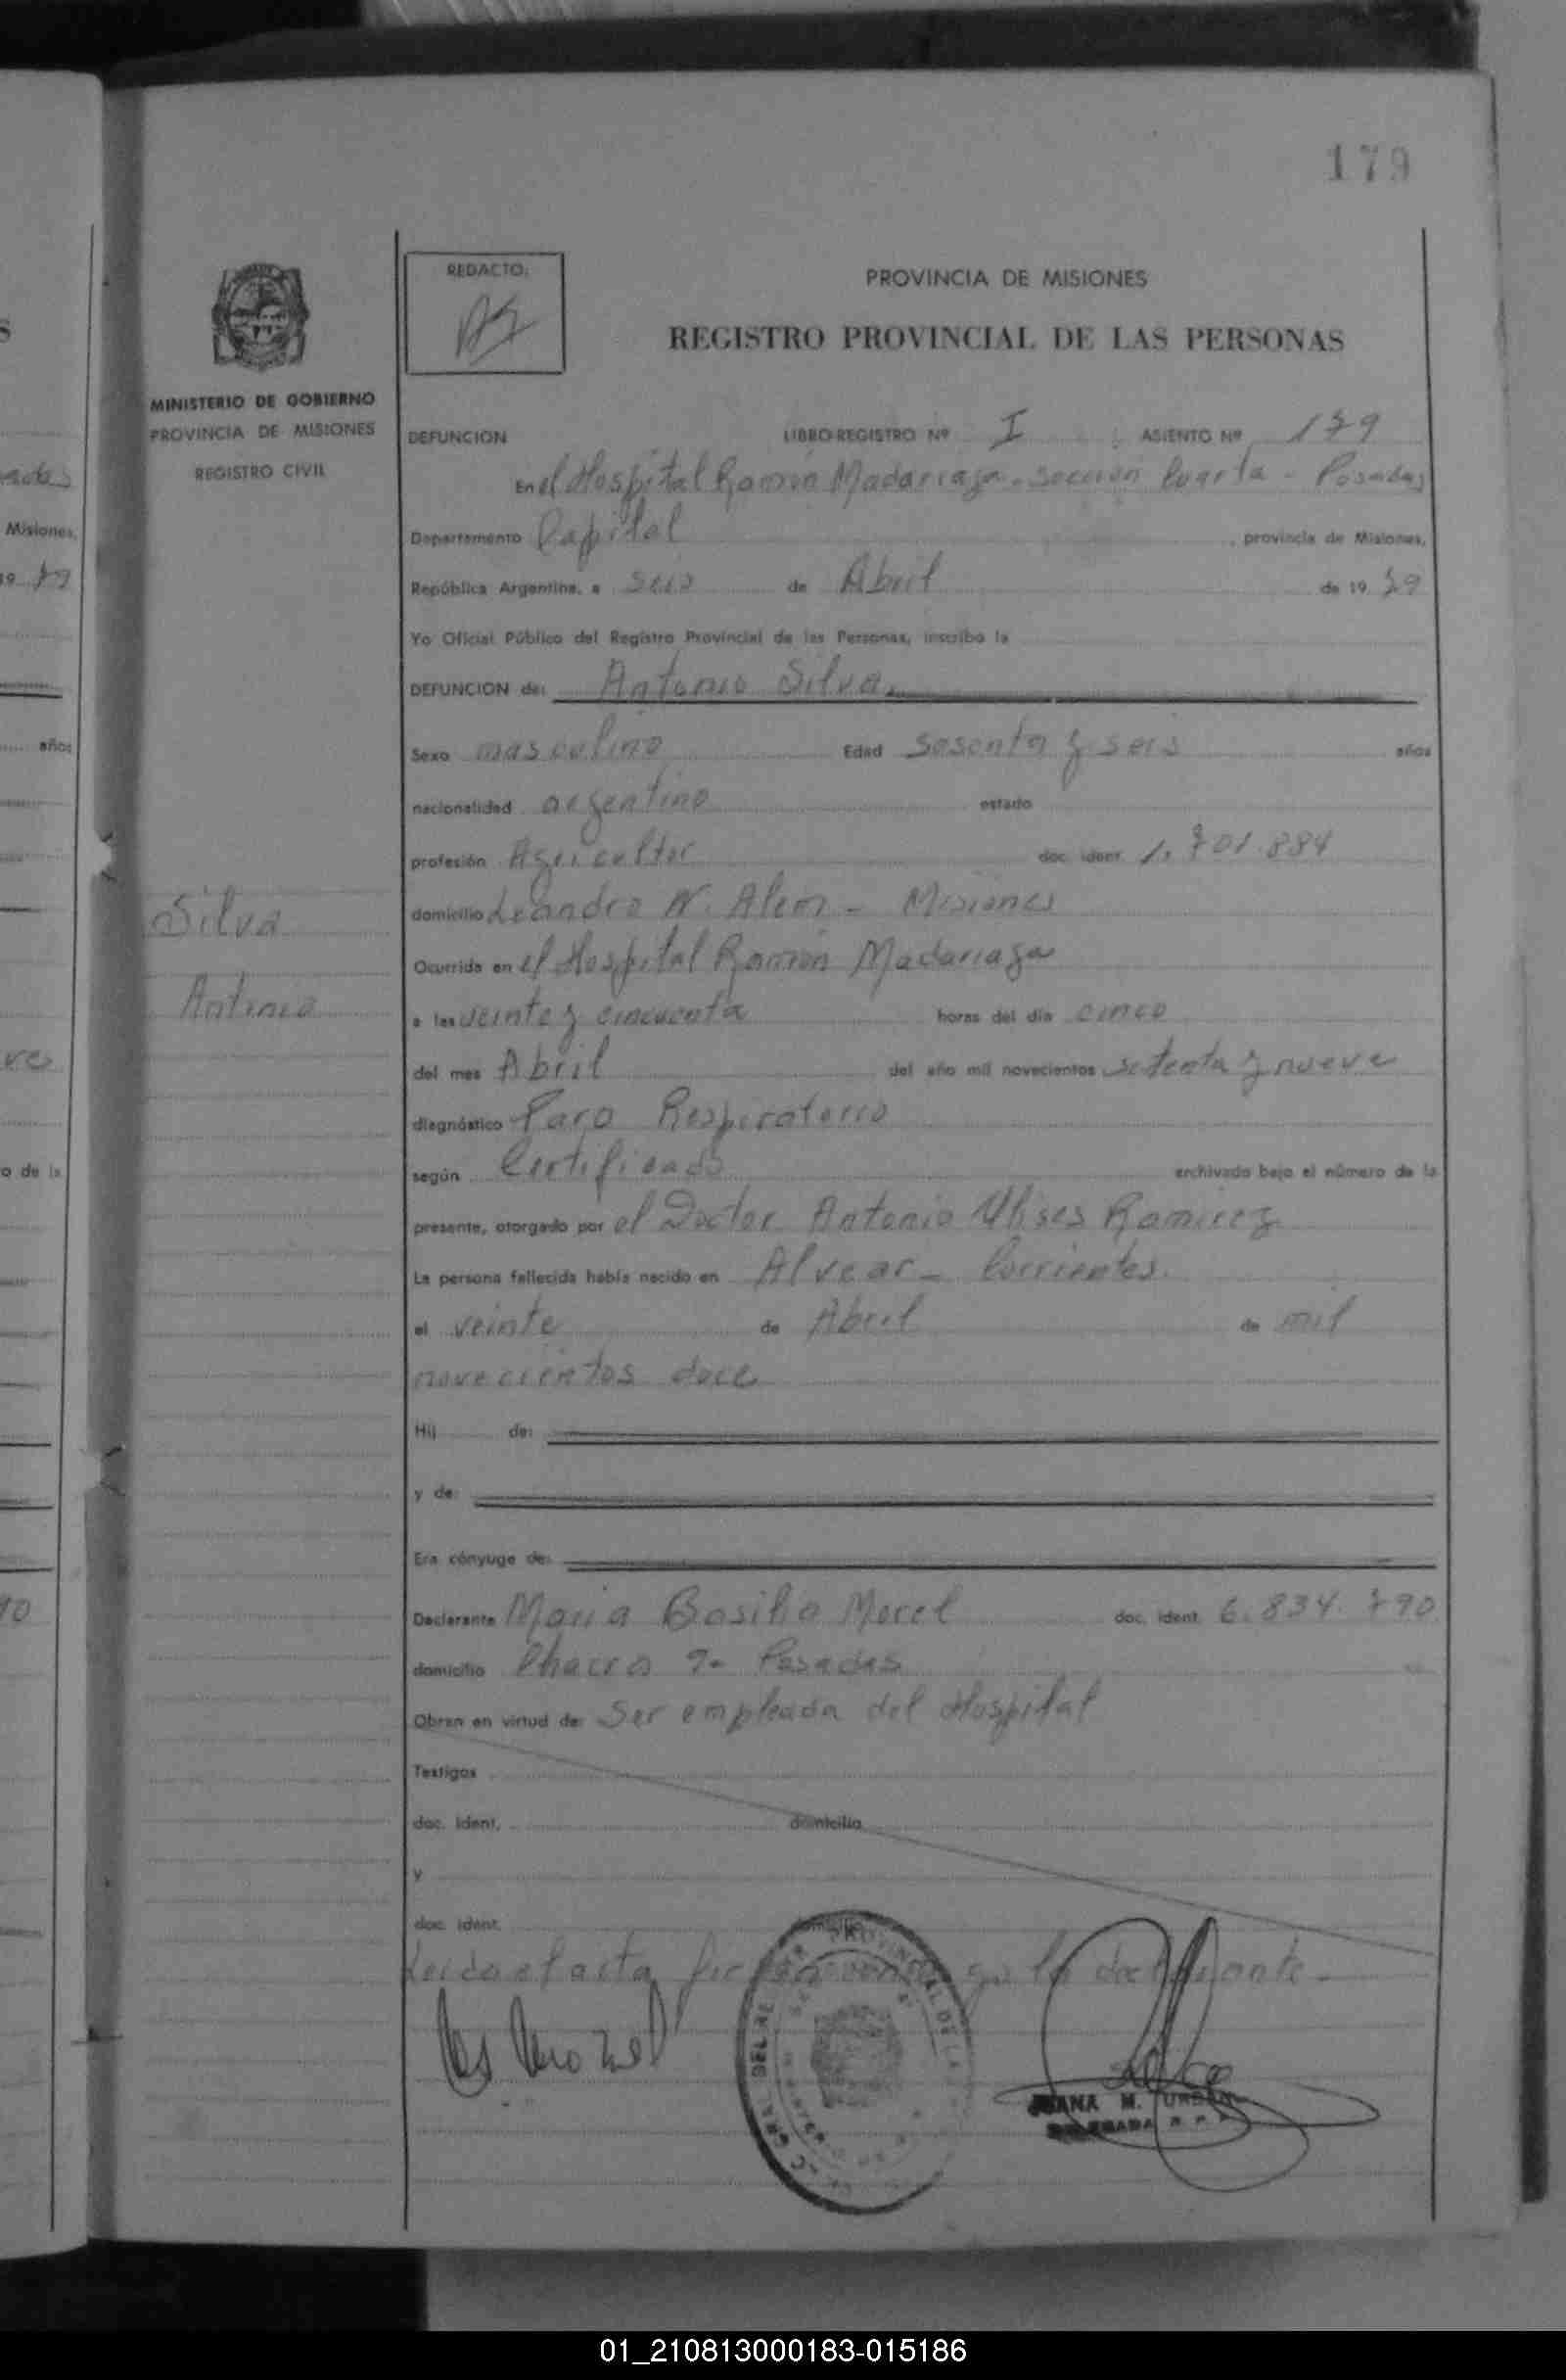 179
REDACTO:
PROVINCIA DE MISIONES
REGISTRO PROVINCIAL DE LAS PERSONAS
MINISTERIO DE GOBIERNO
PROVINCIA DE MISIONES
REGISTRO CIVIL
DEFUNCION LIBRO-REGISTRO Nº I ASIENTO Nº 179
En el Hospital Ramón Madariaga - Sección Cuarta - Posadas
Departamento Capital , provincia de Misiones,
República Argentina, a Seis de Abril de 19 79
Yo Oficial Público del Registro Provincial de las Personas, inscribo la
DEFUNCION de: Antonio Silva.
Sexo masculino Edad sesenta y seis años
nacionalidad argentino estado
profesión Agricultor doc. ident. 1.701.884
Silva
Antonio
domicilio Leandro N. Alem - Misiones
Ocurrida en el Hospital Ramón Madariaga
a las veinte y cincuenta horas del día cinco
del mes Abril del año mil novecientos setenta y nueve
diagnóstico Paro Respiratorio
según Certificado archivado bajo el número de la
presente, otorgado por el Doctor Antonio Ulises Ramirez
La persona fallecida había nacido en Alvear - Corrientes.
el veinte de Abril de mil
novecientos doce
Hij de:
y de:
Era cónyuge de:
Declarante Maria Basilia Morel doc. ident. 6.834.790
domicilio Chacra 9- Posadas
Obran en virtud de: Ser empleada del Hospital
Testigos
doc. ident. domicilio
y
doc. ident. domicilio
Leida el acta la declarante -
PROVINCIAL DE LA
JUANA M.
DELEGADA R. P. P.
Misiones,
19 79
años
o de la
90
01_210813000183-015186